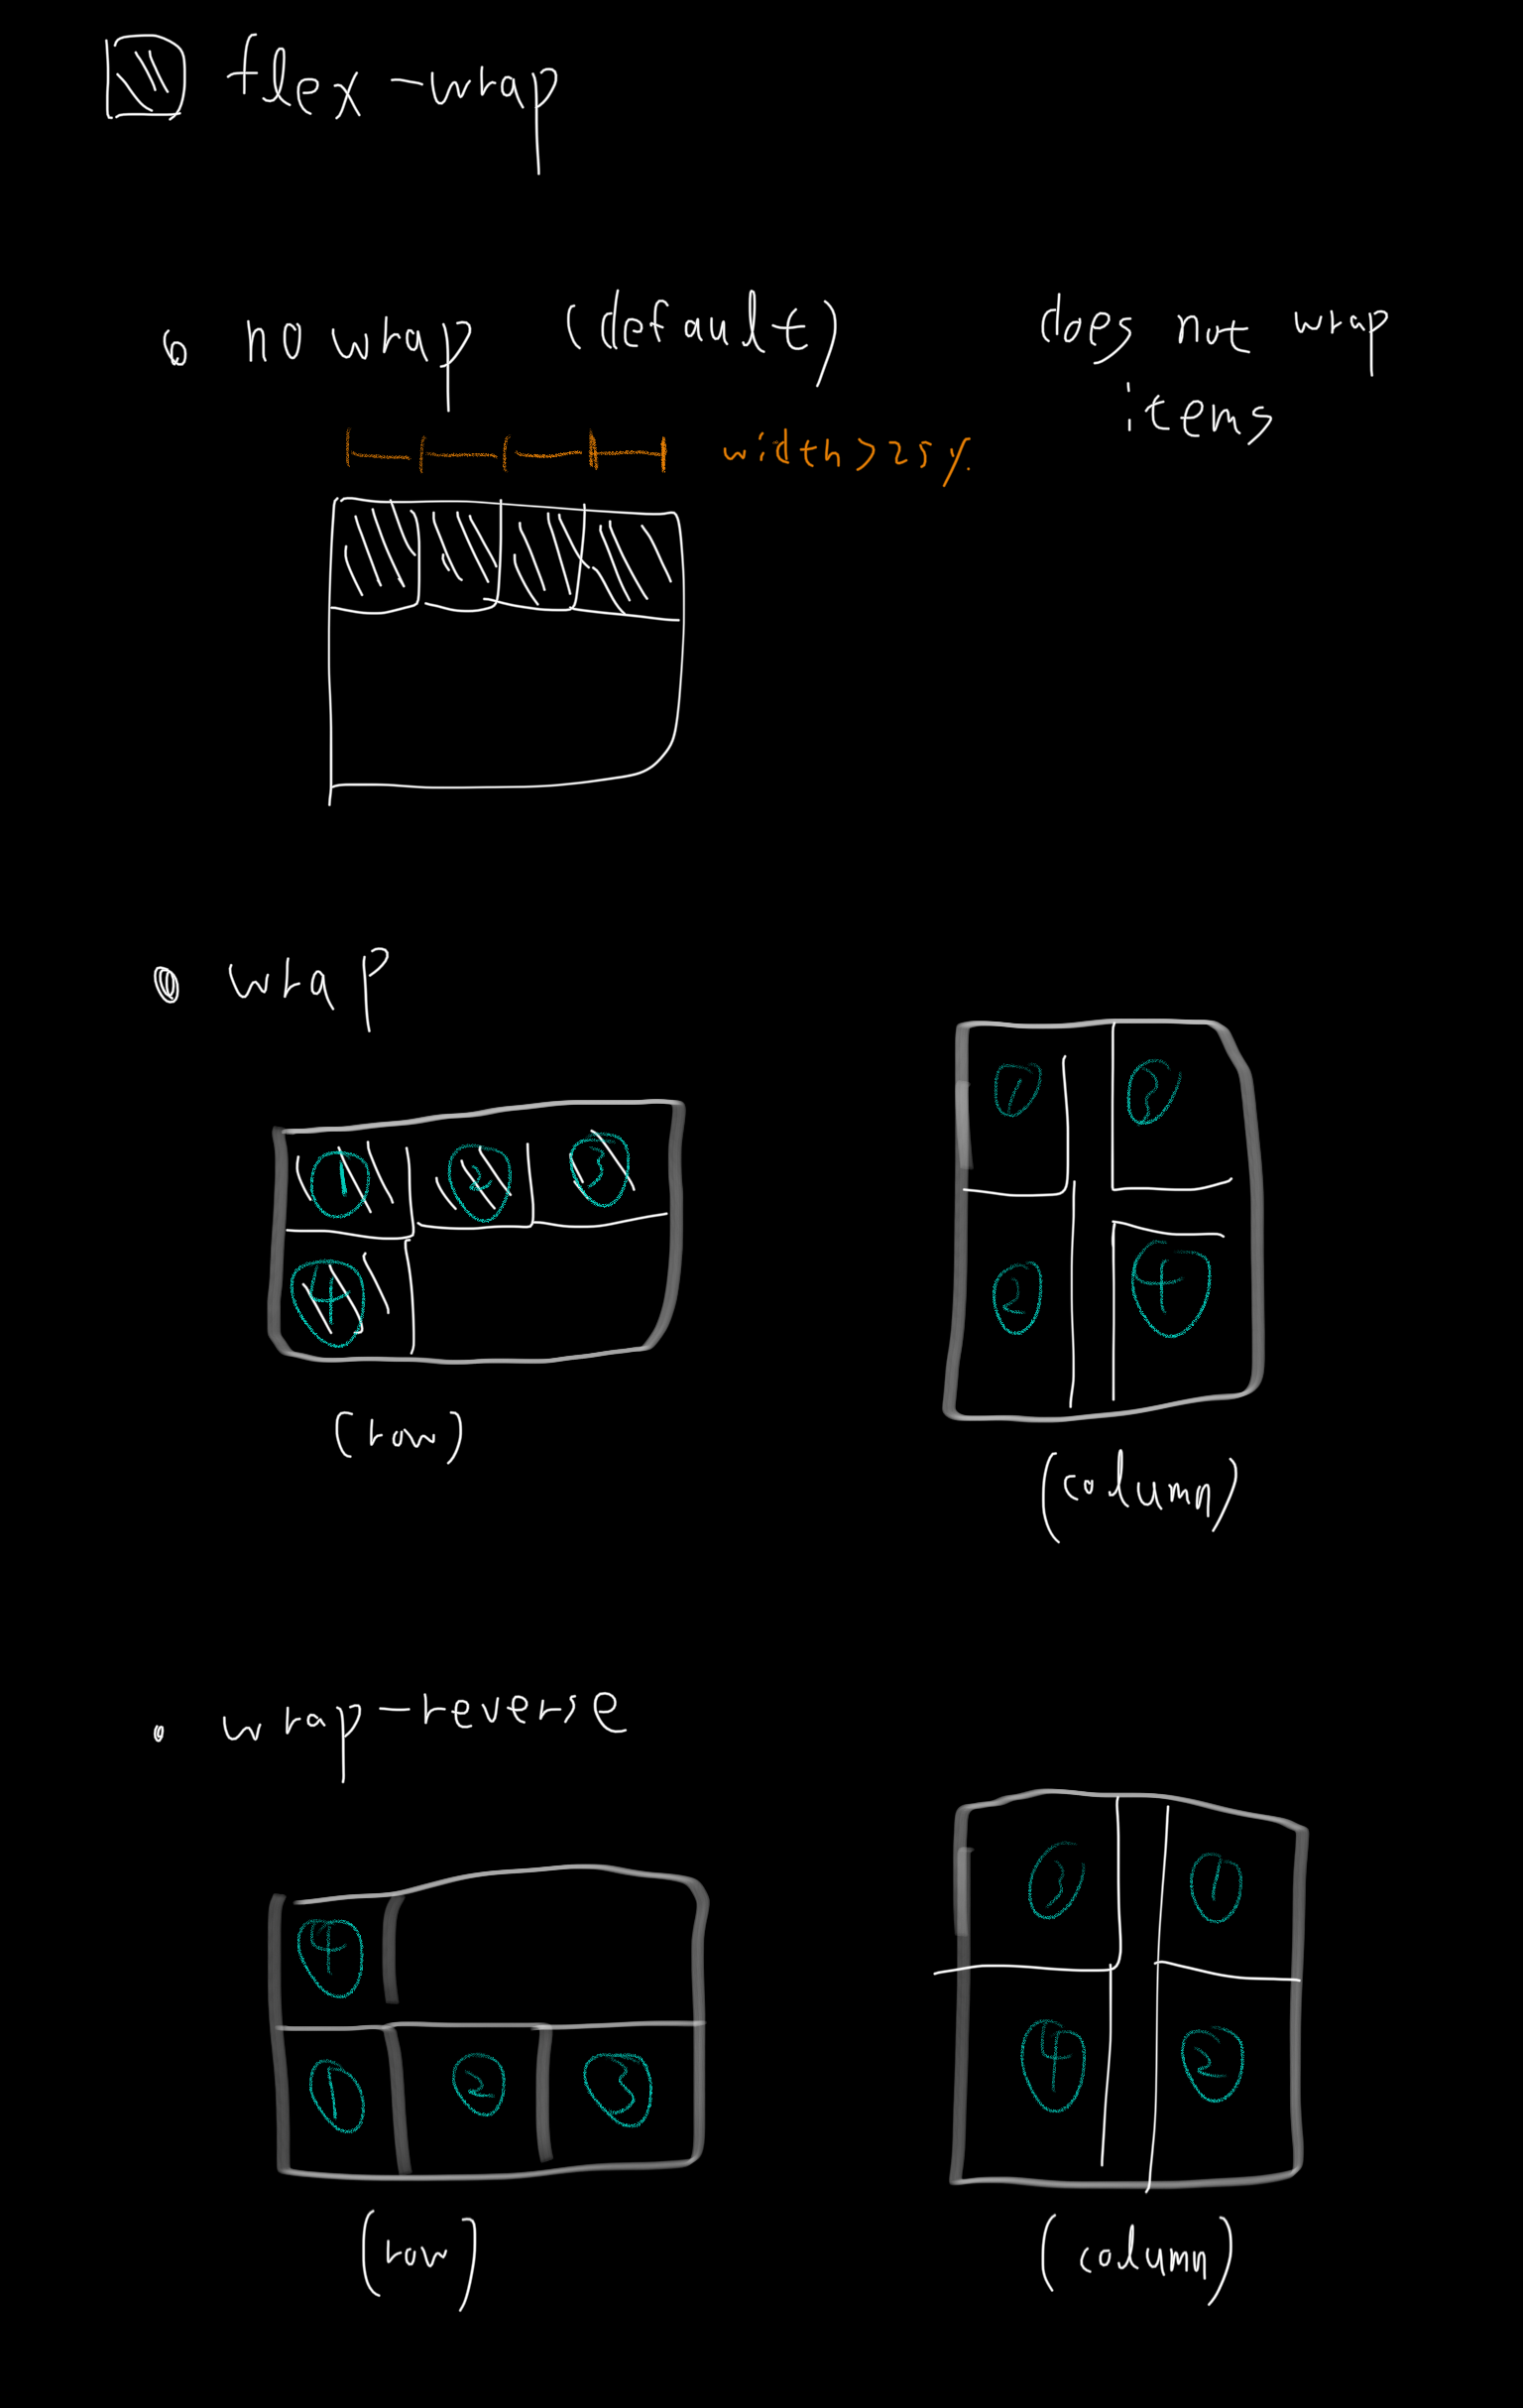 flex-wrap
nowrap (default) does not wrap
items
width > 25%
wrap
① ② ③
④
(row)
① ③
② ④
(column)
wrap-reverse
④
① ② ③
(row)
③ ①
④ ②
(column)